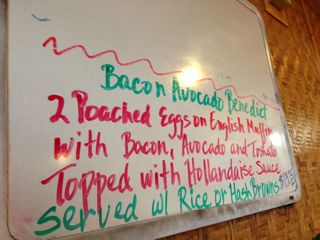 Bacon Avocado Benedict
2 Poached Eggs on English Muffin
with Bacon, Avocado and Tomato
Topped with Hollandaise Sauce
Served w/ Rice or Hash Browns